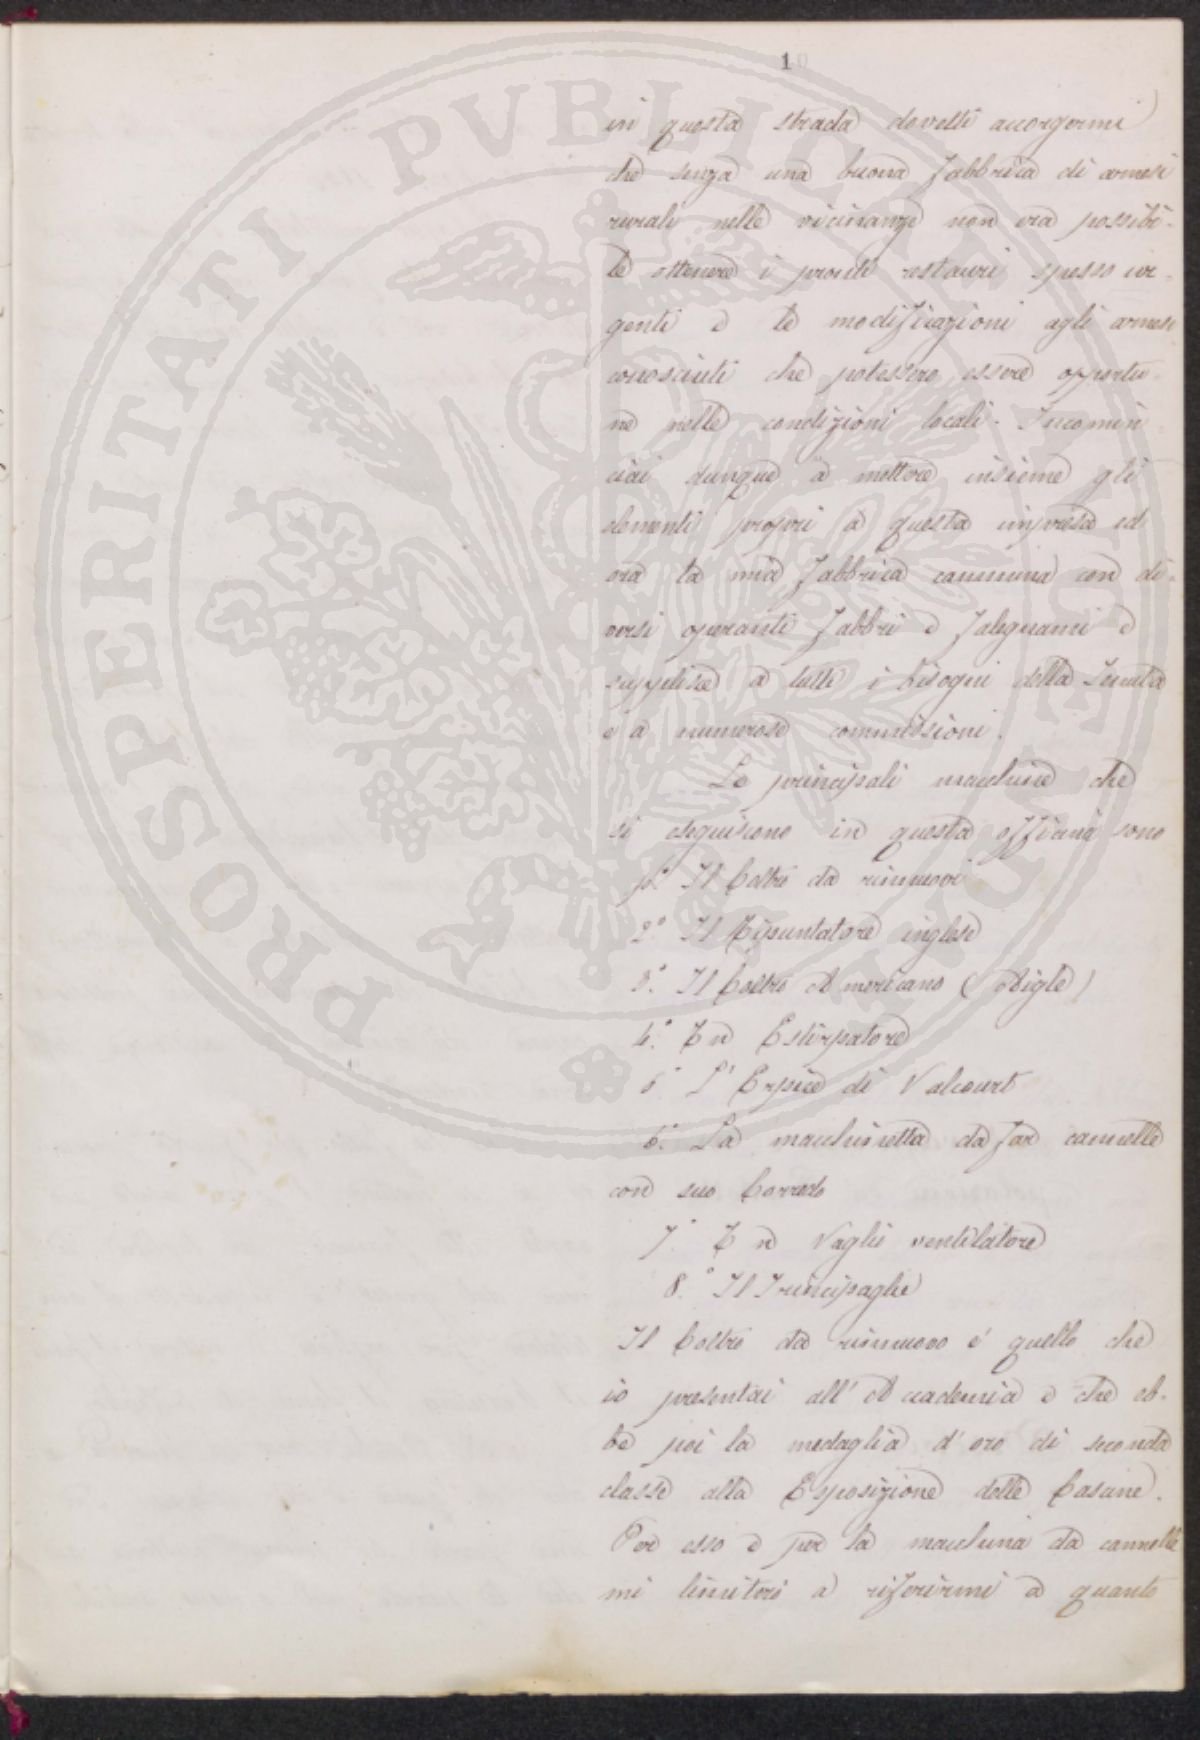 10
in questa strada dovetti accorgermi
che senza una buona fabbrica di arnesi
rurali nelle vicinanze non era possibi-
le ottenere i pronti restauri spesso ur-
genti e le modificazioni agli arnesi
conosciuti che potessero essere opportu-
ne nelle condizioni locali. Incomin
ciai dunque a mettere insieme gli
elementi propri a questa impresa ed
ora la mia fabbrica cammina con di-
versi operanti fabbri e falegnami e
supplisce a tutti i bisogni della Tenuta
e a numerose commissioni.
Le principali macchine che
si eseguiscono in questa officina sono
1.° Il Coltro da rinnuovi
2.° Il Ripuntatore inglese
3.° Il Coltro Americano (Aigle)
4.° Un Estirpatore
5.° L'Erpice di Valcourt
6.° La macchinetta da far cannelle
con suo Corredo
7.° Un Vaglio ventilatore
8.° Il Trinciapaglie
Il Coltro da rinnuovo è quello che
io presentai all'Accademia e che eb-
be poi la medaglia d'oro di seconda
classe alla Esposizione delle Cascine.
Per esso e per la macchina da cannelle
mi limiterò a riferirmi a quanto
PROSPERITATI PUBLICAE AUGENDAE